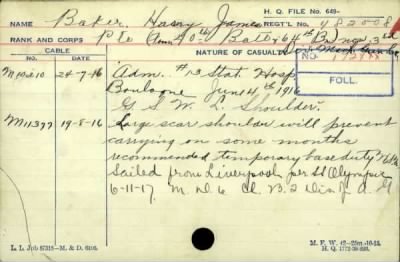 H. Q. FILE NO. 649-
NAME Baker, Harry James REGT'L NO. 482008
RANK AND CORPS Pte
CABLE
NO. DATE NATURE OF CASUALTY NO.
FOLL.
M10210 24-7-16 Adm. #13 Stat. Hosp
Boulogne June 14th 1916
G S W L Shoulder.
M11377 19-8-16 Large scar shoulder will prevent
carrying on some months
recommended temporary base duty
Sailed from Liverpool per SS Olympic
6-11-17. M. D. 6 Cl. B.2
L. L. Job 87315-M. & D. 6106. M. F. W. 42-25m-10-15.
H. Q. 1772-39-893.